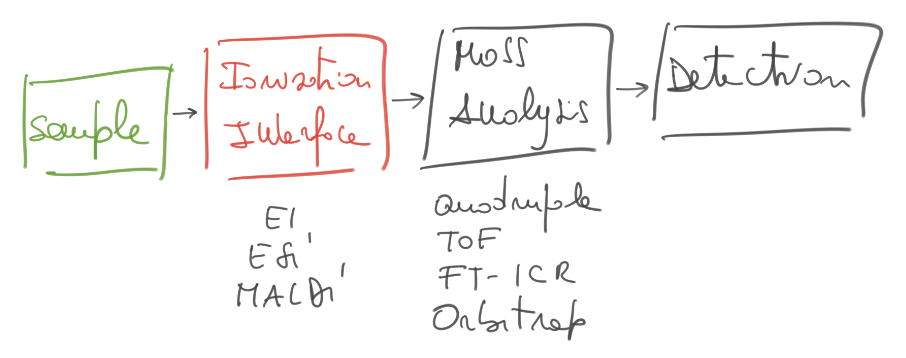 Sample
Ionization
Interface
Mass
Analysis
Detection
EI
ESI
MALDI
Quadrupole
ToF
FT-ICR
Orbitrap